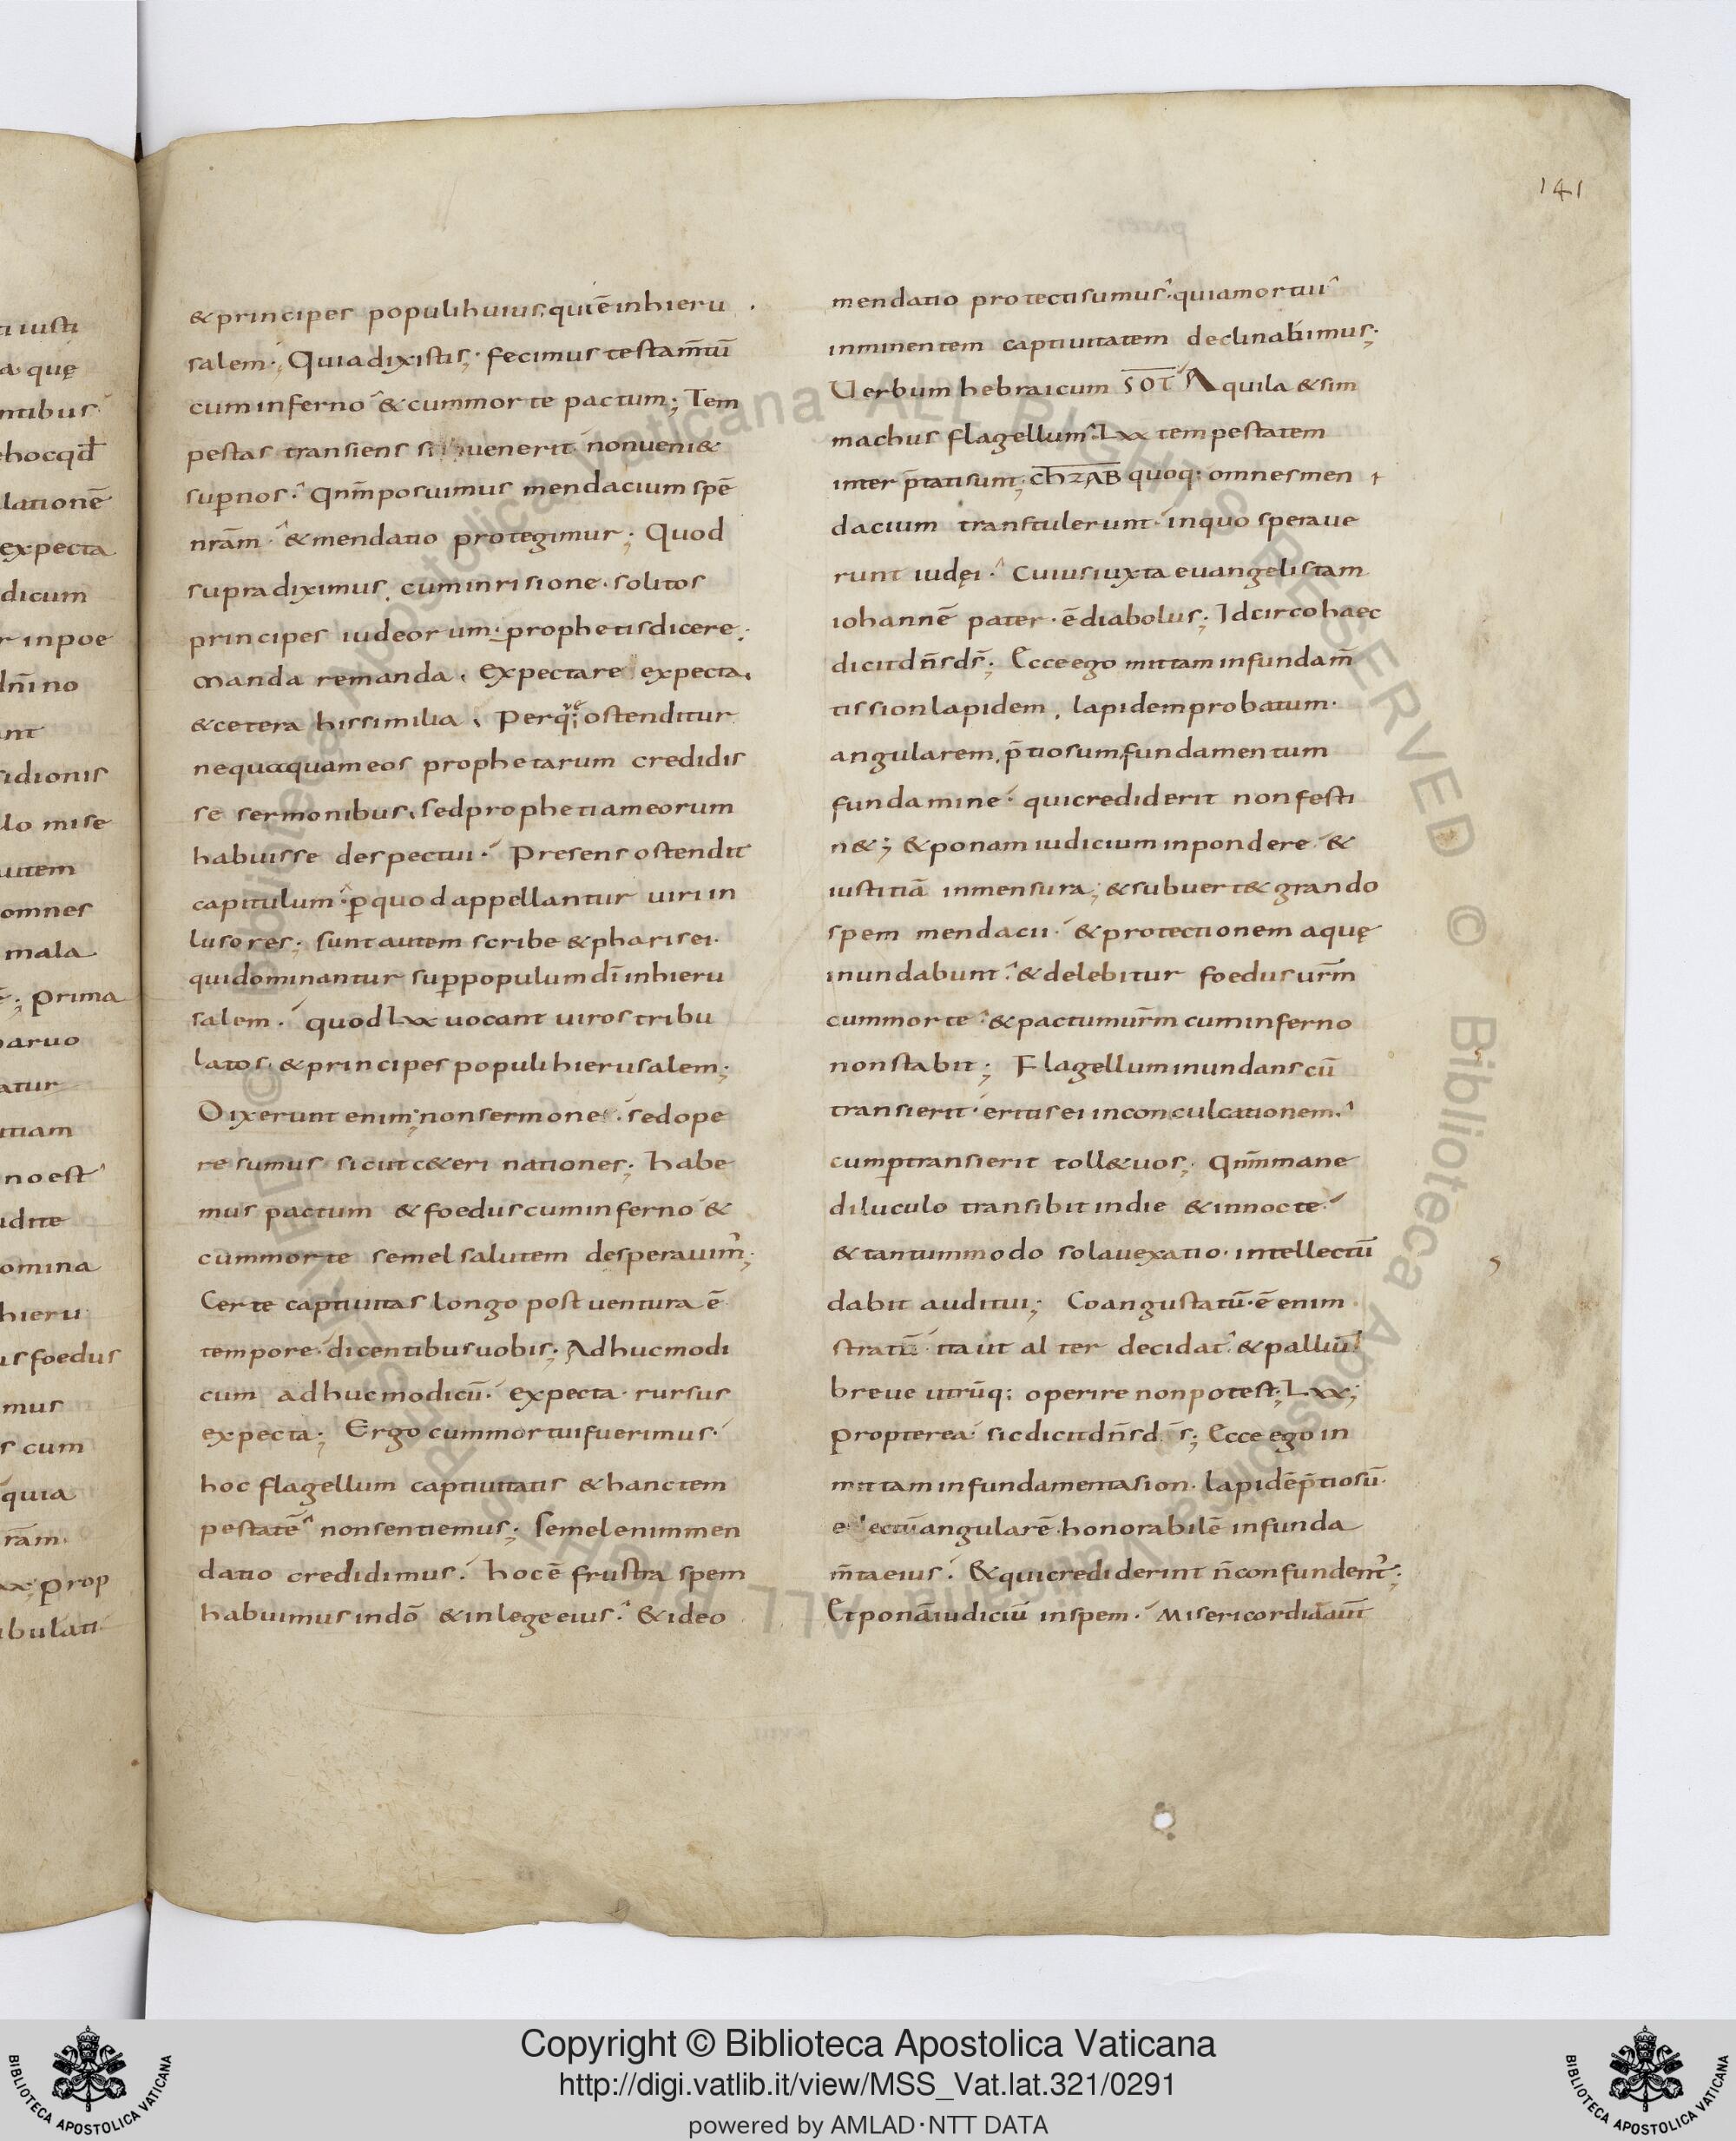 141
ti iusti
a quę
ntibus
ehocqđ
lationē
expecta
dicum
r inpoe
dn̄i no
ant
sidionis
llo mise
autem
omnes
mala
ē; prima
paruo
atur
utiam
no est
udite
omina
hieru
us foedus
mus
s cum
quia
ram.
xx; prop
ibulati
& principes populi huius; qui ē inhieru
salem; Quia dixistis; fecimus testam̄tū
cum inferno & cum morte pactum; Tem
pestas transiens si uenerit nonueni&
sup nos. Qnm̄ posuimus mendacium spē
nrām & mendatio protegimur; Quod
supra diximus. cum inrisione. solitos
principes iudeorum; prophetis dicere;
manda remanda. expectare expecta.
& cetera his similia. Per q; ostenditur
nequaquam eos prophetarum credidis
se sermonibus. sed prophetiam eorum
habuisse despectui. Presens ostendit
capitulum. p quod appellantur uiri in
lusores; sunt autem scribe & pharisei.
qui dominantur sup populum dī inhieru
salem. quod Lxx uocant uiros tribu
latos. & principes populi hierusalem;
Dixerunt enim; non sermone. sed ope
re sumus sicut c&eri nationes; habe
mus pactum & foedus cum inferno &
cum morte semel salutem desperauim';
Certe captiuitas longo post uentura ē
tempore dicentibus uobis; Adhuc modi
cum adhuc modicū. expecta rursus
expecta; Ergo cum mortui fuerimus.
hoc flagellum captiuitatis & hanc tem
pestatē non sentiemus; semel enim men
datio credidimus. hoc ē frustra spem
habuimus in dō & in lege eius. & ideo
mendatio protecti sumus. quia mortui
inminentem captiuitatem declinabimus;
Uerbum hebraicum SOT Aquila & sim
machus flagellum. Lxx tempestatem
inter p̄tati sunt; CHZAB quoq; omnes men
dacium transtulerunt. in quo speraue
runt iudęi. cuius iuxta euangelistam
iohannē pater. ē diabolus; Idcirco haec
dicit dn̄s ds̄; Ecce ego mittam in fundam̄
tis sion lapidem. lapidem probatum.
angularem. p̄tiosum fundamentum
fundamine. qui crediderit non festi
n&; & ponam iudicium in pondere &
iustitiā in mensura; & subuert& grando
spem mendacii. & protectionem aquę
inundabunt. & delebitur foedus urm̄
cum morte & pactum urm̄ cum inferno
non stabit; Flagellum inundans cū
transierit. eritis ei in conculcationem.
cum ptransierit toll& uos; Qnm̄ mane
diluculo transibit in die & in nocte
& tantummodo sola uexatio. intellectū
dabit auditui; Coangustatū. ē enim
stratū ita ut alter decidat & palliū
breue utrūq; operire non potest; Lxx;
propterea sic dicit dn̄s ds̄; Ecce ego in
mittam in fundamenta sion. lapidē p̄tiosū.
electū angularē. honorabilē in funda
m̄ta eius. & qui crediderint n̄ confundent';
Et ponā iudiciū in spem. misericordia aūt
Copyright © Biblioteca Apostolica Vaticana
http://digi.vatlib.it/view/MSS_Vat.lat.321/0291
powered by AMLAD·NTT DATA
BIBLIOTECA APOSTOLICA VATICANA
BIBLIOTECA APOSTOLICA VATICANA